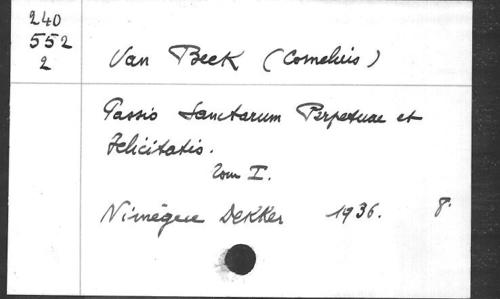 240
552
2
Van Beek (Cornelius)
Passio Sanctarum Perpetuae et
Felicitatis.
Tom I.
Nimègue Dekker 1936. 8.